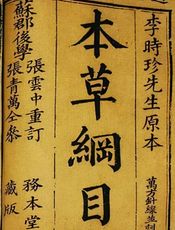 李時珍先生原本
本草綱目
萬方針線並刻
蘇郡後學
張雲中重訂
張青萬仝參
務本堂
藏版